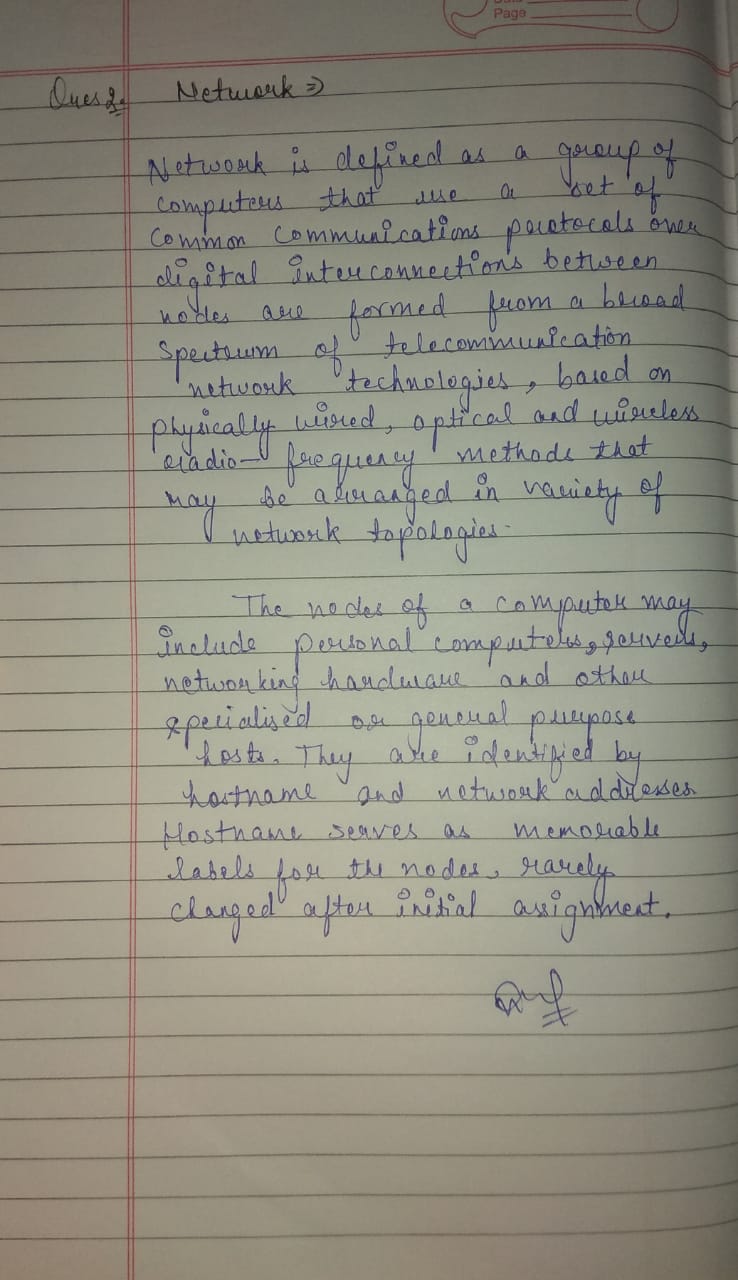 Page
Ques 2. Network ⇒
Network is defined as a group of
computers that use a set of
common communications protocols over
digital interconnections between
nodes are formed from a broad
spectrum of telecommunication
network technologies, based on
physically wired, optical and wireless
radio- frequency methods that
may be arranged in variety of
network topologies.
The nodes of a computer may
include personal computers, servers,
networking hardware and other
specialised or general purpose
hosts. They are identified by
hostname and network addresses.
Hostname serves as memorable
labels for the nodes, rarely
changed after initial assignment.